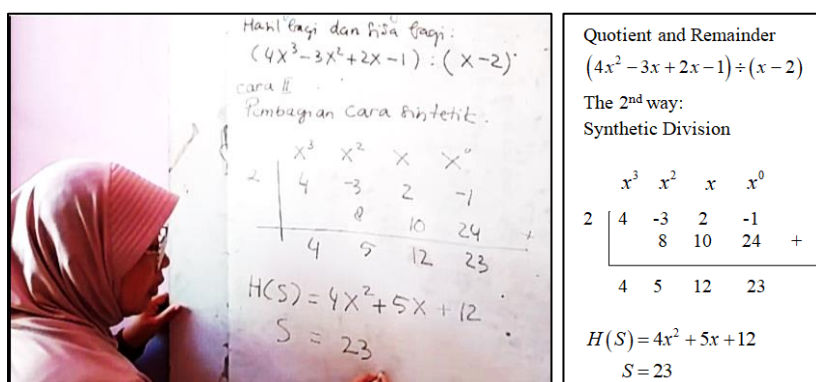 Hasil bagi dan sisa bagi:
(4x³-3x²+2x-1) : (x-2)
cara II
Pembagian cara sintetik.
x³ x² x x⁰
2 4 -3 2 -1
8 10 24 +
4 5 12 23
H(S) = 4x²+5x+12
S = 23
Quotient and Remainder
(4x²-3x+2x-1)÷(x-2)
The 2nd way:
Synthetic Division
x³ x² x x⁰
2 4 -3 2 -1
8 10 24 +
4 5 12 23
H(S)=4x²+5x+12
S=23